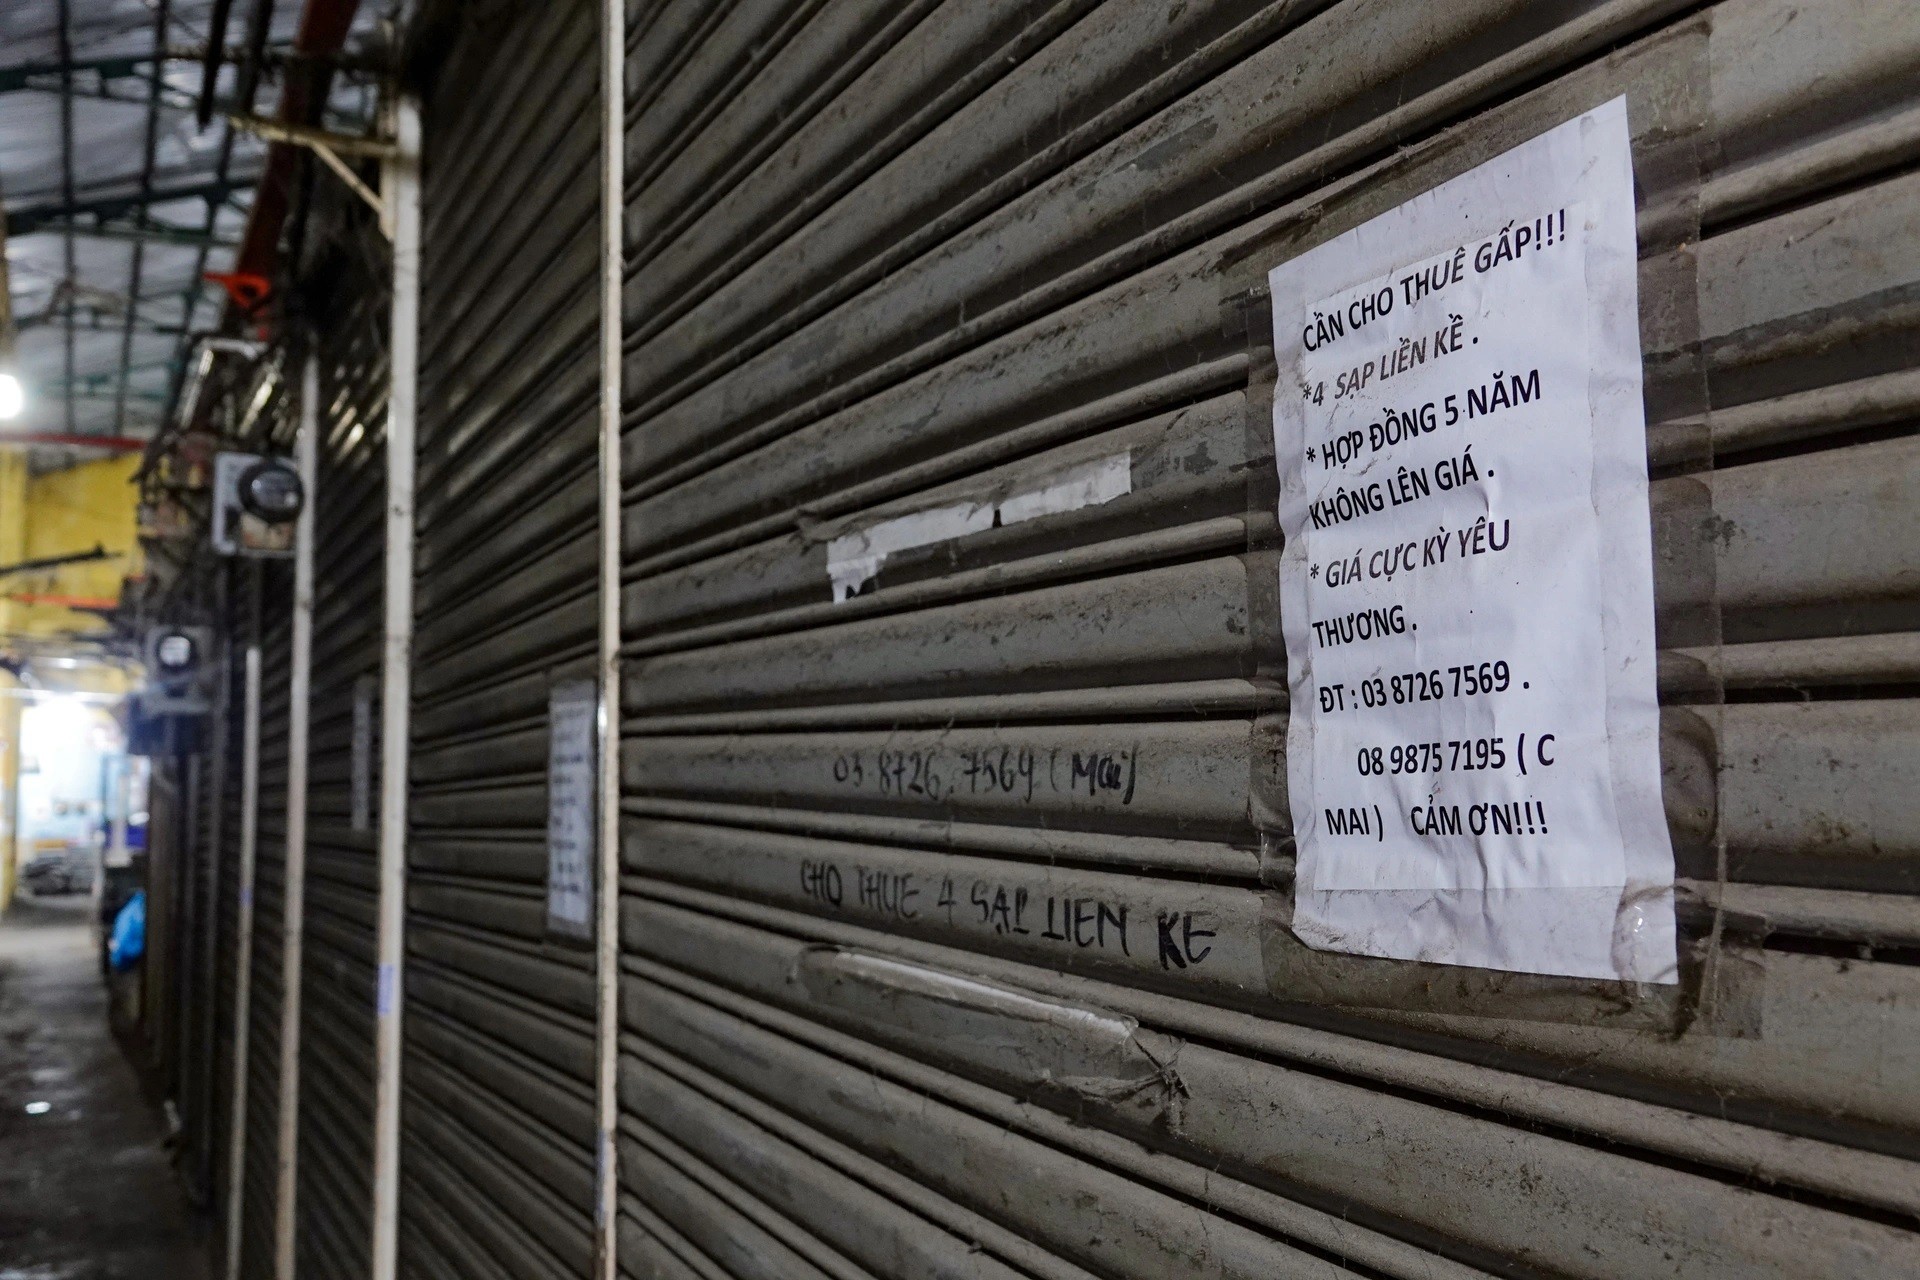 CẦN CHO THUÊ GẤP!!!
*4 SẠP LIỀN KỀ .
* HỢP ĐỒNG 5 NĂM
KHÔNG LÊN GIÁ .
* GIÁ CỰC KỲ YÊU
THƯƠNG .
ĐT : 03 8726 7569 .
08 9875 7195 ( C
MAI ) CẢM ƠN!!!
03 8726.7569 (Mai)
CHO THUE 4 SẠP LIEN KE